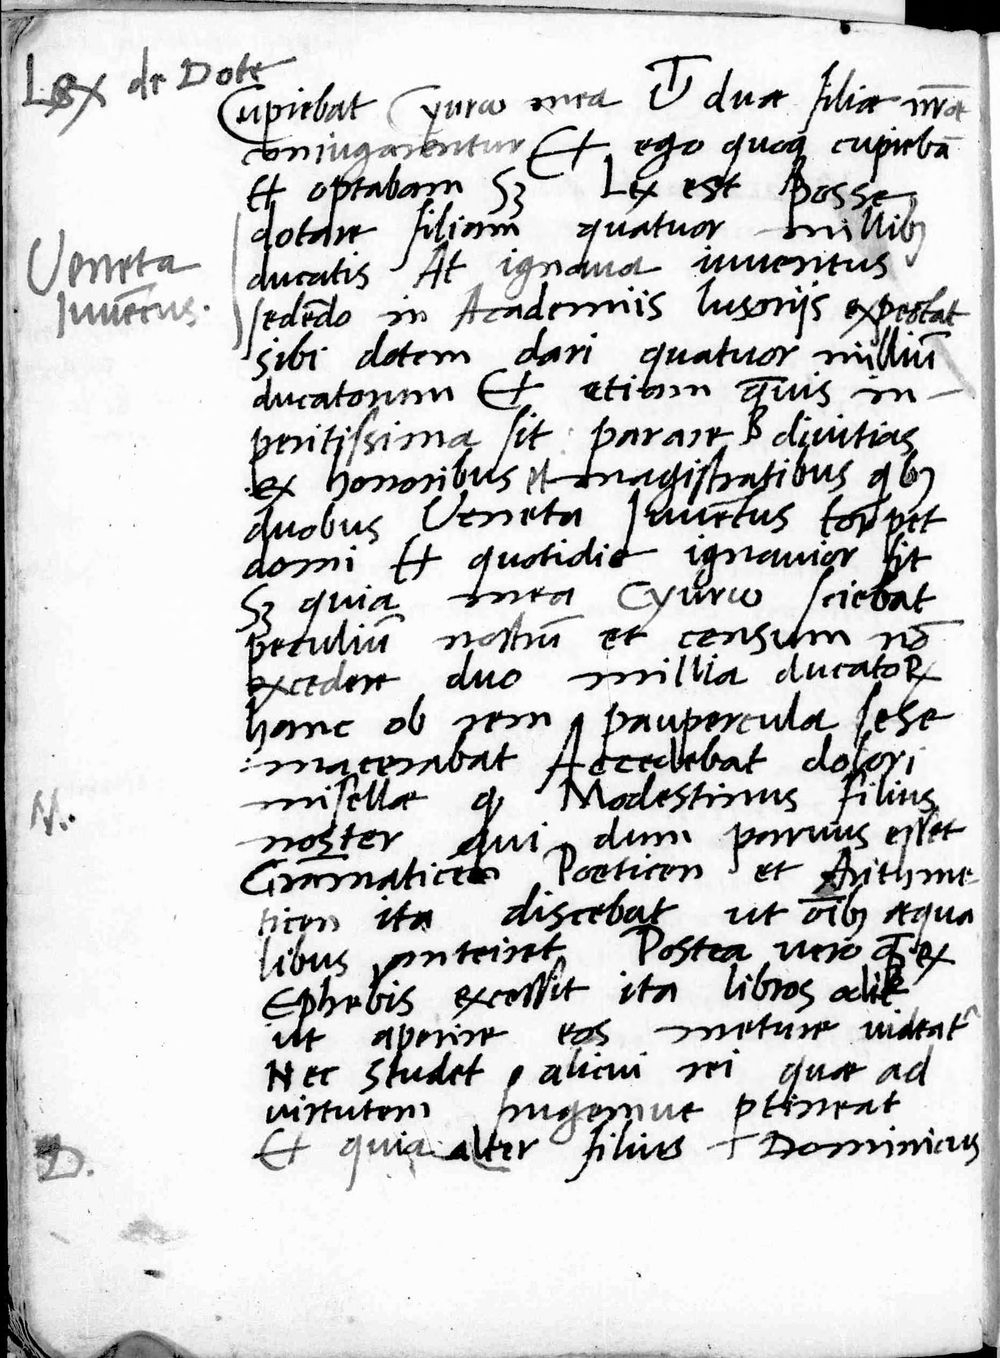 Lex de Dote
Cupiebat Cyurw mea Ut duæ filiæ nr̄æ
coniugarentur Et ego quoq cupiebā
Et optabam Sꝫ Lex est Posse
dotare filiam quatuor millibꝫ
Veneta
ducatis At ignaua iuuentus
Iuuēētus.
sedēdo in Academiis lusorijs expectat
sibi dotem dari quatuor milliū
ducatorum Et etiam q̄uis in-
peritissima sit parare diuitias
ex honoribus et magistratibus qbꝫ
duobus Veneta Iuuētus torpet
domi Et quotidie ignauior fit
Sꝫ quia mea Cyurw sciebat
peculiū nostrū et censum nō
excedere duo millia ducatoꝝ
hanc ob rem paupercula sese
macerabat Accedebat dolori
N.
misellæ ꝙ Modestinus filius
noster qui dum paruus esset
Grāmaticen Poeticen et Arithme-
ticen ita discebat ut oībꝫ æqua
libus anteiret Postea uero q̄ ex
Ephebis excessit ita libros odit
ut aperire eos metuere uideat᷑
Nec studet alicui rei quæ ad
uirtutem ingemue ꝑtineat
D.
Et quia alter filius Dominicus